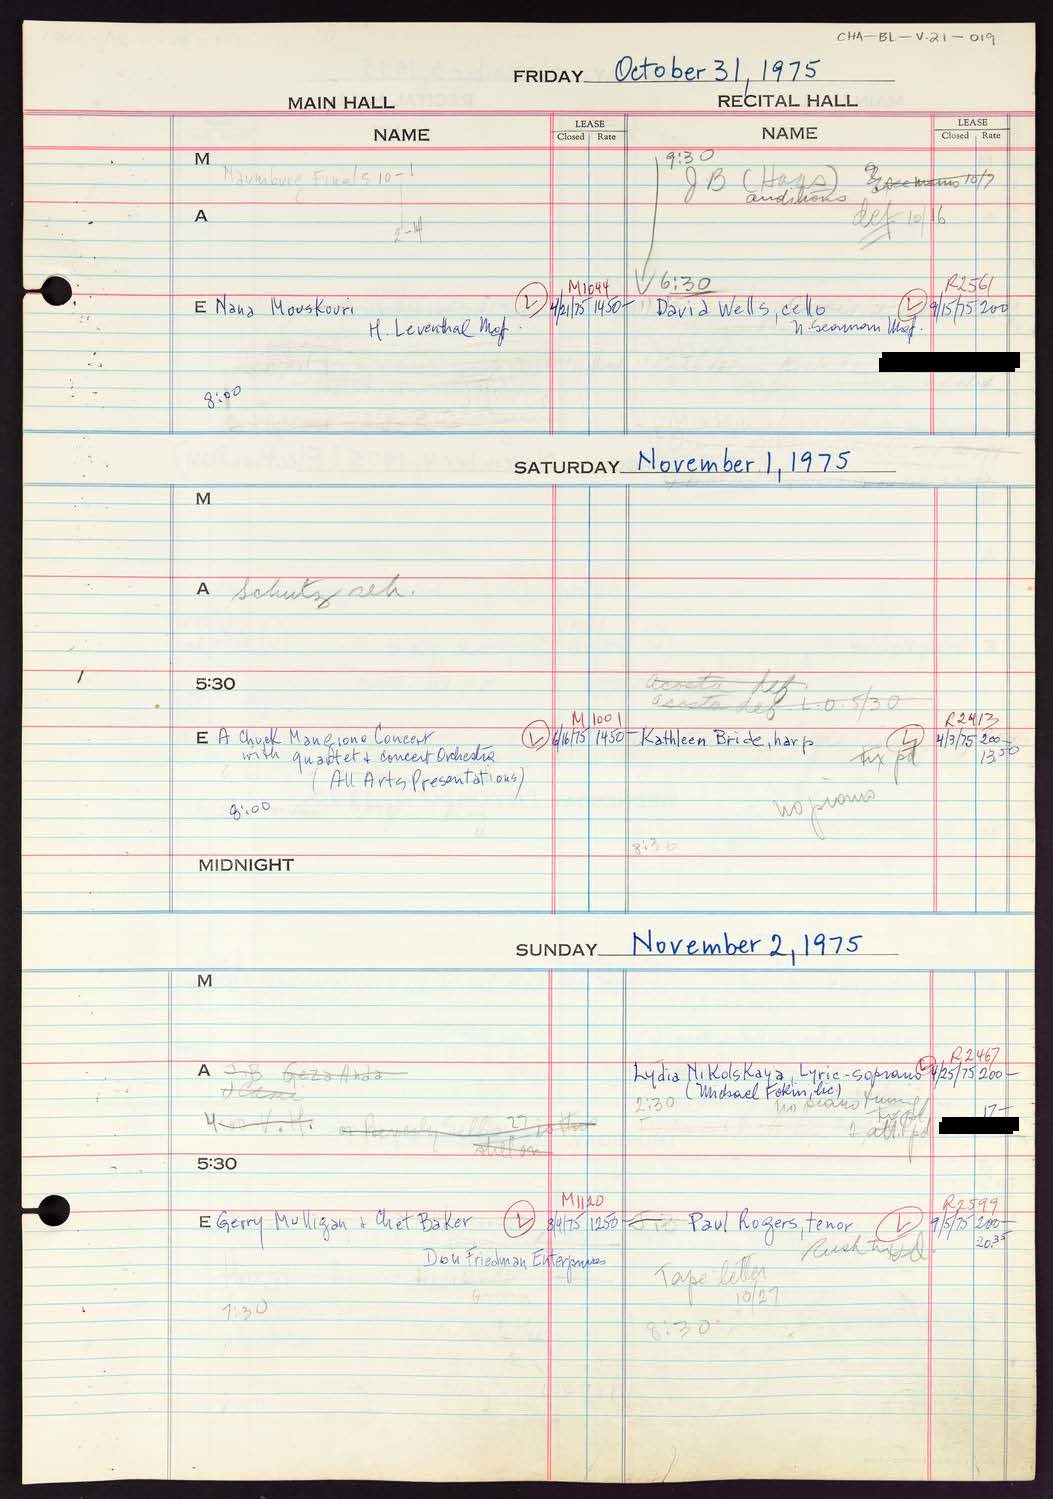 CHA-BL-V.21-019
FRIDAY October 31, 1975
MAIN HALL RECITAL HALL
NAME LEASE Closed Rate NAME LEASE Closed Rate
M Naumburg Finals 10-1 9:30
J B (Hays) 10/7
auditions
A def 10/16
2-4
6:30
M1044 R2561
E Nana Mouskouri L 4/21/75 1450- David Wells, cello L 9/15/75 200
H. Leventhal Mgt. N. Seaman Mgt.
8:00
SATURDAY November 1, 1975
M
A Schutz reh.
5:30 Acosta def
Acosta def L.O. 5/30
M1001 R2413
E A Chuck Mangione Concert L 6/16/75 1450- Kathleen Bride, harp L 4/3/75 200-
with quartet & concert Orchestra tix pd 13.50
(All Arts Presentations)
no piano
8:00
8:30
MIDNIGHT
SUNDAY November 2, 1975
M
R2467
A J B Geza Anda Lydia Nikolskaya, Lyric-soprano L 4/25/75 200-
(Michael Fokin, lic.)
2:30 no piano tuning
17-
4 V.H. 27 tix pd
2 att. pd
5:30
M1120 R2599
E Gerry Mulligan & Chet Baker L 8/4/75 1250- Paul Rogers, tenor L 9/5/75 200-
Rush tix pd 20.35
Don Friedman Enterprises
Tape letter
10/27
7:30
8:30